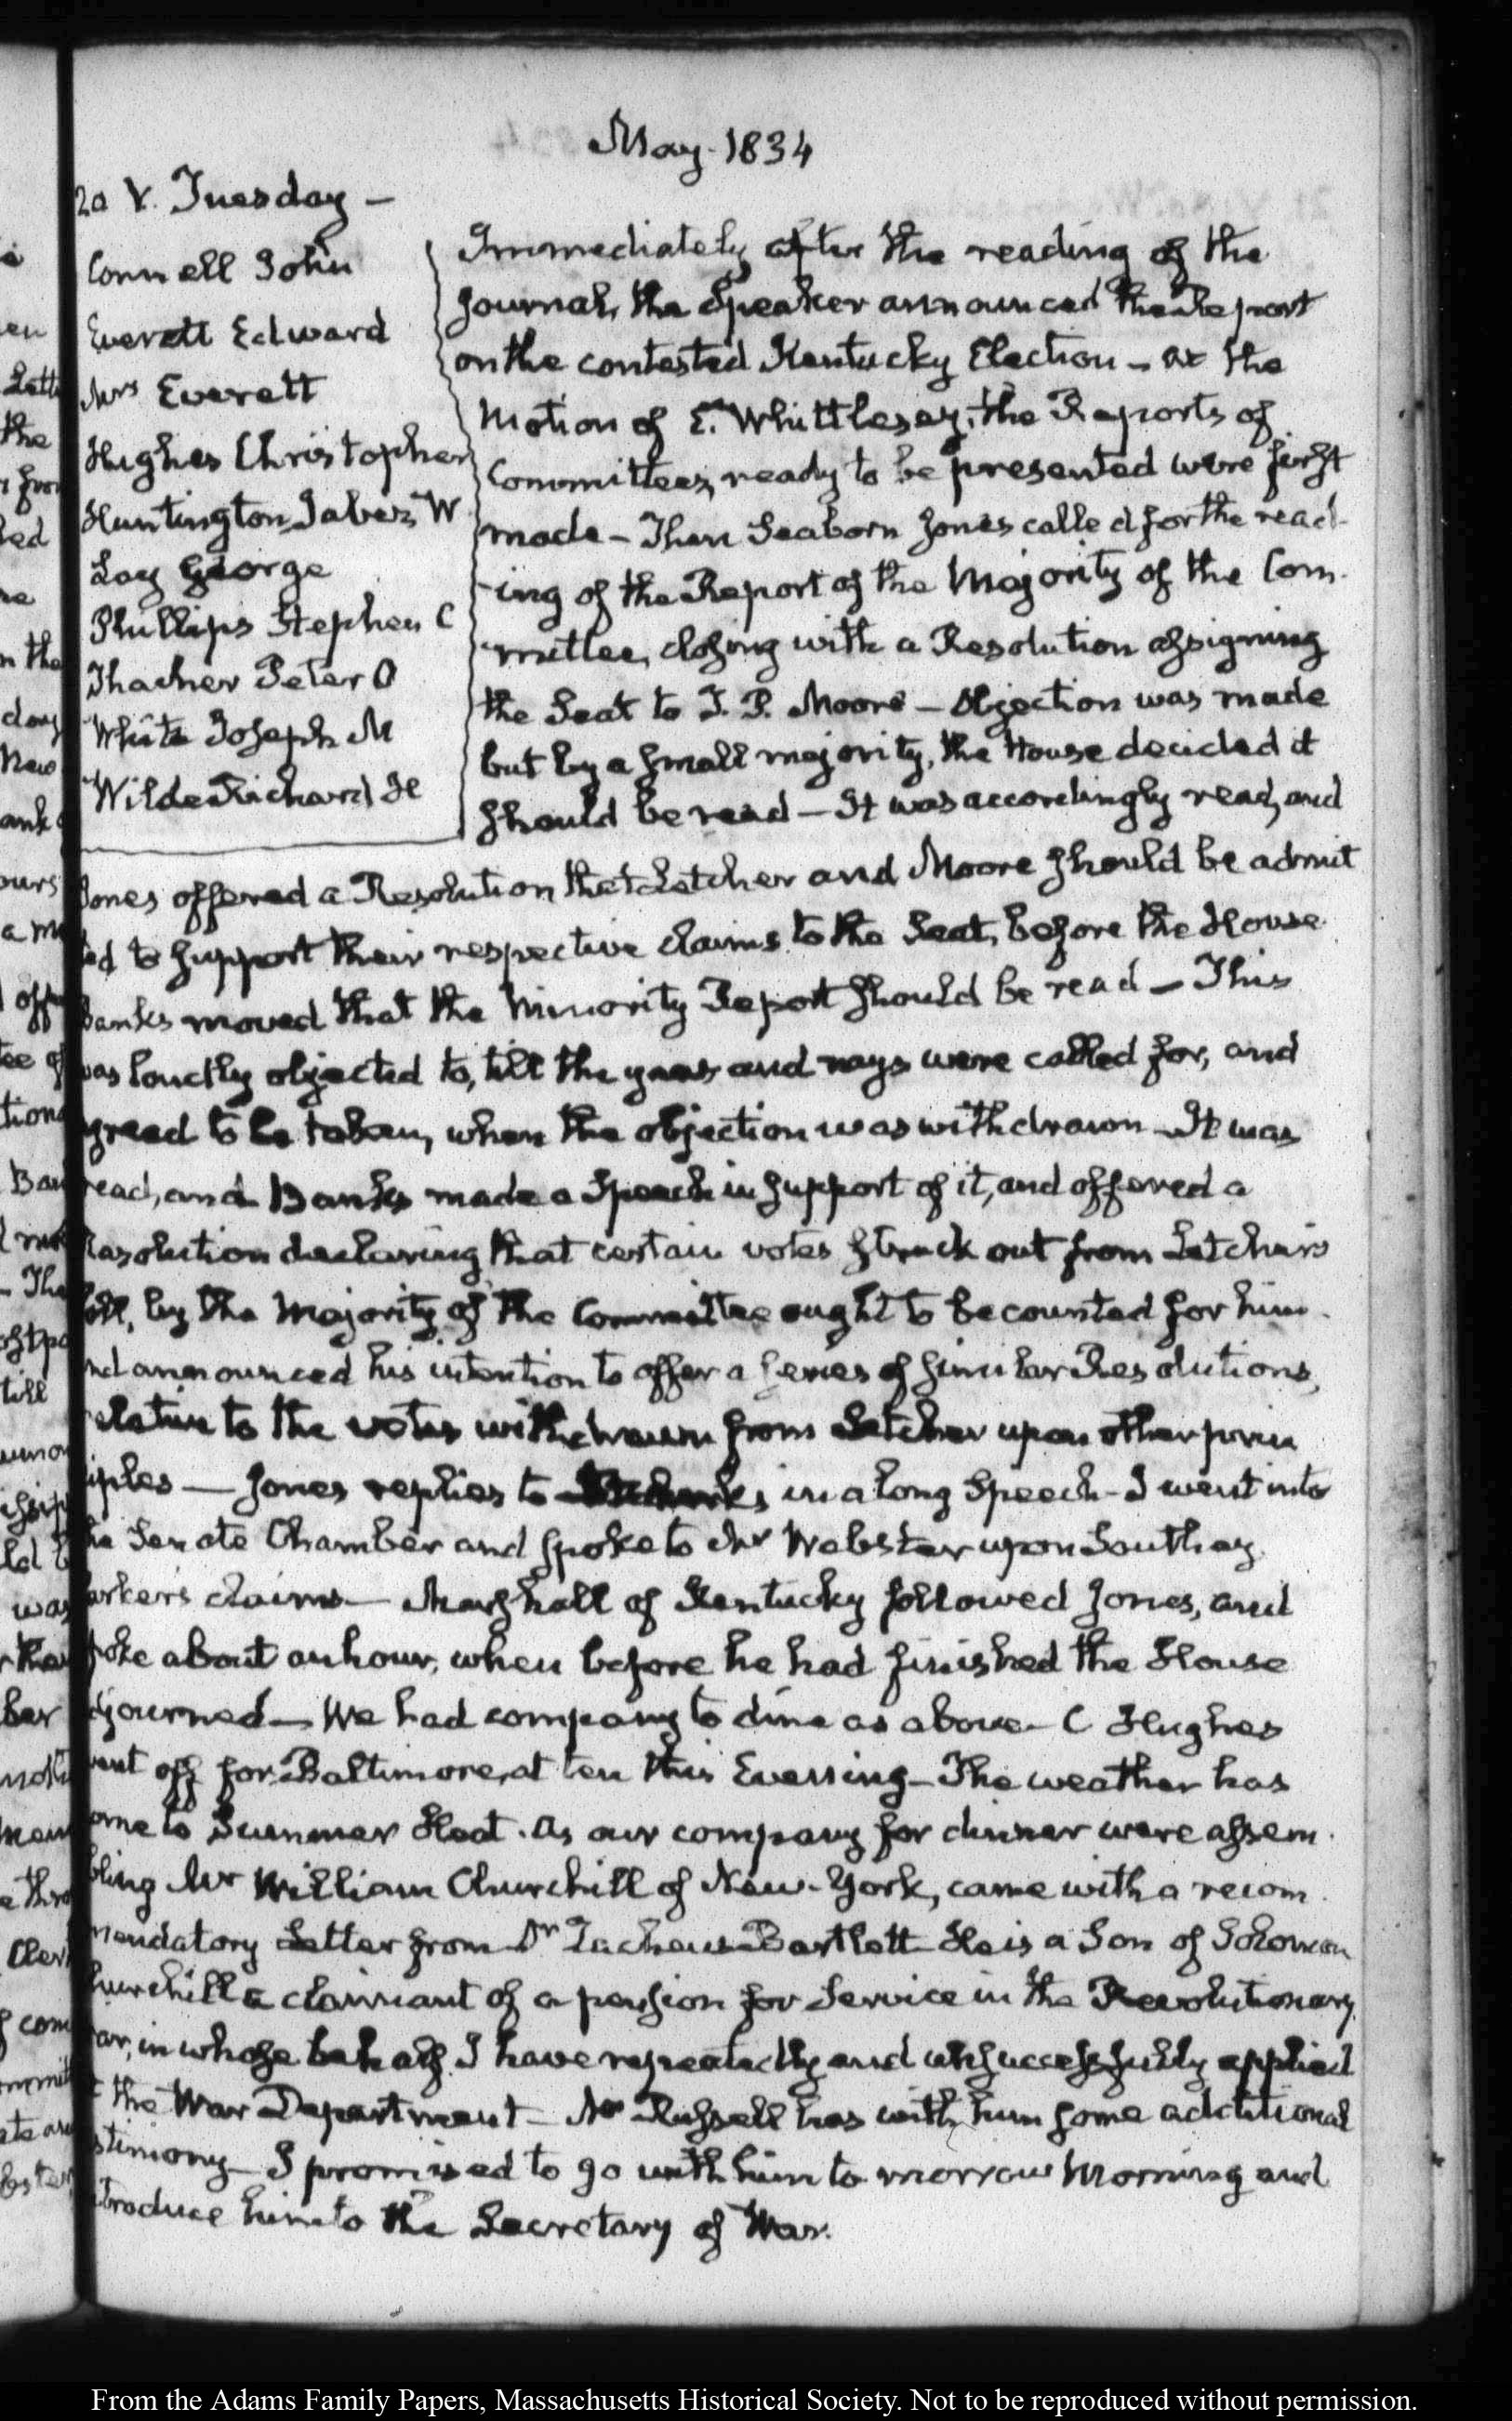 May. 1834
20 V. Tuesday —
Connell John
Everett Edward
Mrs Everett
Hughes Christopher
Huntington Jabez W
Lay George
Phillips Stephen C
Thacher Peter O
White Joseph M
Wilde Richard H
Immediately after the reading of the
Journal, the Speaker announced the Report
on the contested Kentucky Election — at the
motion of E. Whittlesey, the Reports of
Committees, ready to be presented were first
made — Then Seaborn Jones called for the read-
ing of the Report of the Majority of the Com-
mittee, closing with a Resolution assigning
the Seat to T. P. Moore — Objection was made
but by a small majority, the House decided it
should be read — It was accordingly read, and
Jones offered a Resolution that Letcher and Moore should be admit
ted to support their respective claims to the Seat, before the House
Banks moved that the Minority Report should be read — This
was loudly objected to, till the yeas and nays were called for, and
agreed to be taken, when the objection was withdrawn — It was
read, and Banks made a Speech in support of it, and offered a
Resolution declaring that certain votes struck out from Letcher's
poll, by the Majority of the Committee ought to be counted for him
and announced his intention to offer a series of similar Resolutions,
relative to the votes withdrawn from Letcher upon other prin
ciples — Jones replies to Banks in a long Speech — I went into
the Senate Chamber and spoke to Mr Webster upon Southey
Parker's claims — Marshall of Kentucky followed Jones, and
spoke about an hour, when before he had finished the House
adjourned — We had company to dine as above — C Hughes
went off for Baltimore, at ten this Evening — The weather has
come to Summer Heat. As our company for dinner were assem-
bling Mr William Churchill of New-York, came with a recom-
mendatory Letter from Dr Zacheus Bartlett He is a Son of Solomon
Churchill a claimant of a pension for Service in the Revolutionary
War, in whose behalf I have repeatedly and unsuccessfully applied
at the War Department — Mr Russell has with him some additional
testimony — I promised to go with him to morrow Morning and
introduce him to the Secretary of War.
From the Adams Family Papers, Massachusetts Historical Society. Not to be reproduced without permission.